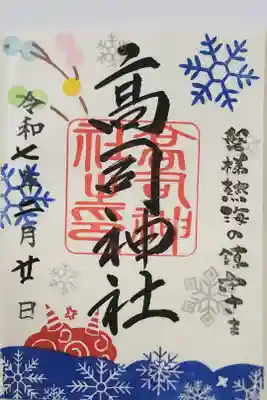 磐梯熱海の鎮守さま
高司神社
高司神
社之印
令和七年二月廿日